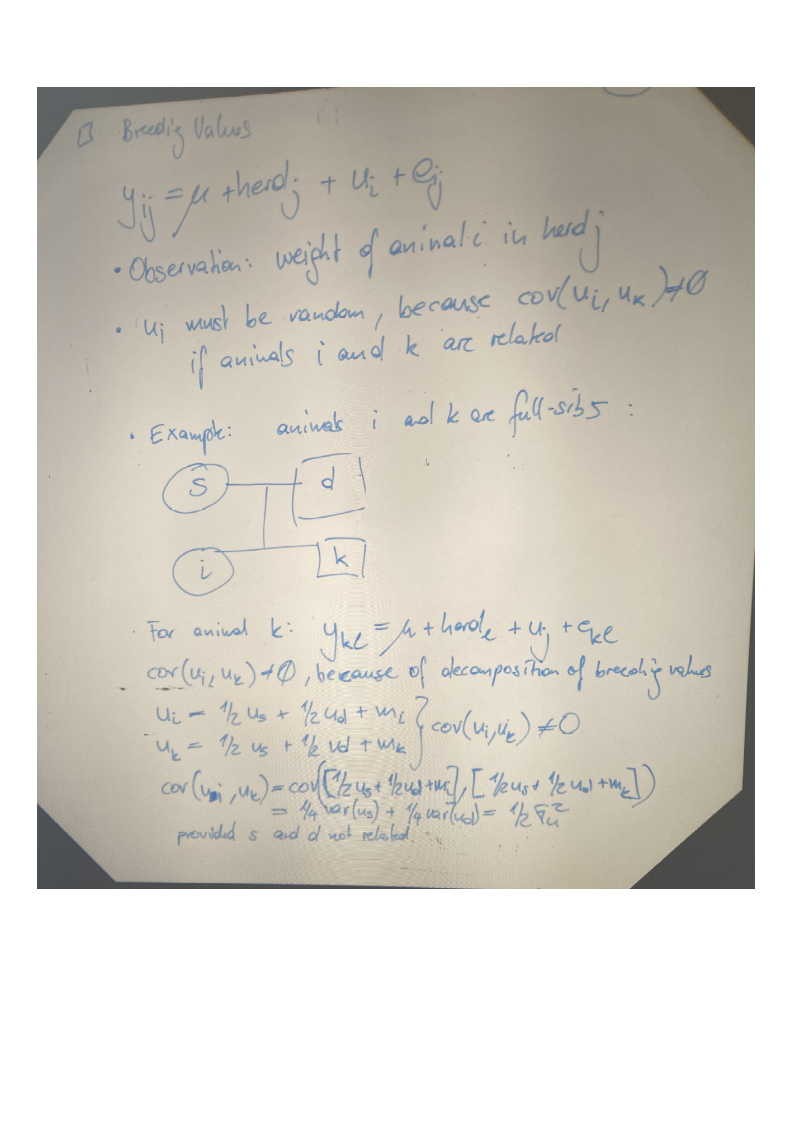 Breedig Values
y_ij = μ + herd_j + u_i + e_ij
• Observation: weight of animal i in herd j
• u_i must be random, because cov(u_i, u_k) ≠ 0
if animals i and k are related
• Example: animals i and k are full-sibs:
S d
i k
• For animal k: y_kl = μ + herd_l + u_j + e_kl
cov(u_i, u_k) ≠ 0, because of decomposition of breedig values
u_i = 1/2 u_s + 1/2 u_d + m_i } cov(u_i, u_k) ≠ 0
u_k = 1/2 u_s + 1/2 u_d + m_k
cov(u_i, u_k) = cov([1/2 u_s + 1/2 u_d + m_i], [1/2 u_s + 1/2 u_d + m_k])
= 1/4 var(u_s) + 1/4 var(u_d) = 1/2 σ_u^2
provided s and d not related.